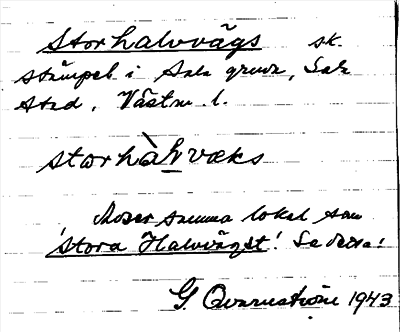 Storhalvvägs sk.
stämpel i Sala gruva, Sala
stad, Västm. l.
storhàlvvæks
Avser samma lokal som
'Stora Halvvägst'. Se detta!
G. Qvarnström 1943